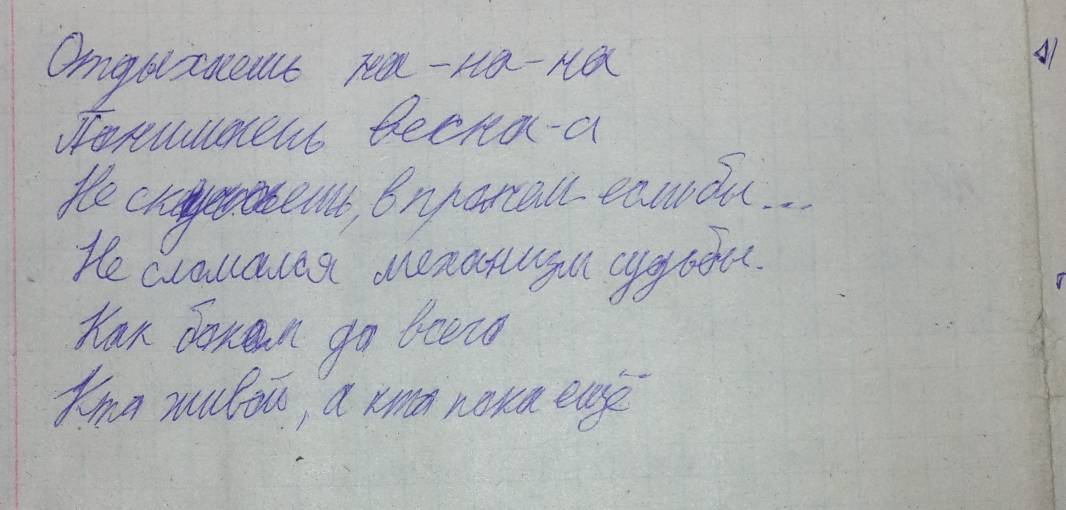 Отдыхаешь на-на-на
Понимаешь весна-а
Не скучаешь, в прошлом если бы...
Не сломался механизм судьбы.
Как боком до всего
Кто живой, а кто пока ещё